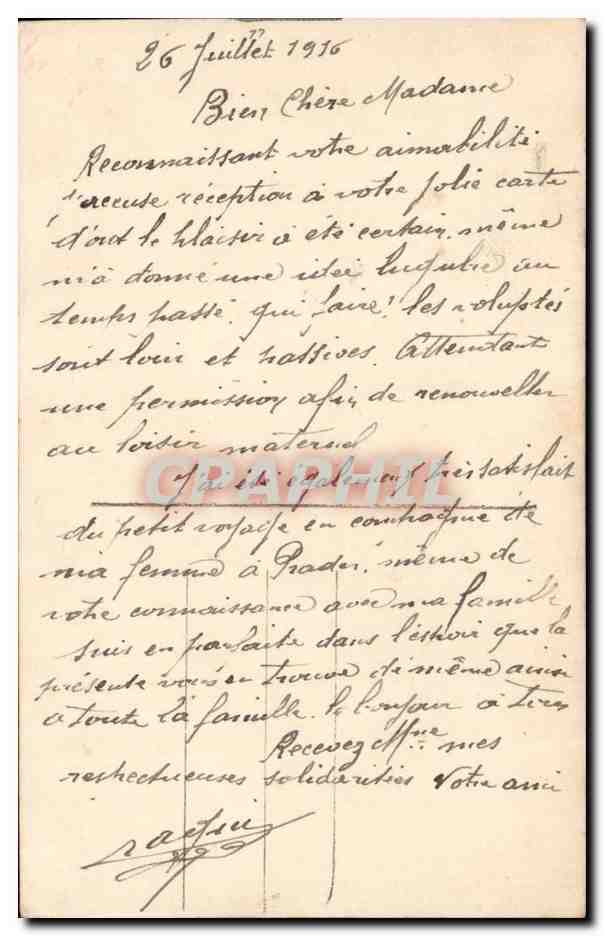 26 Juillet 1916
Bien Chère Madame
Reconnaissant votre aimabilité
j'accuse réception à votre jolie carte
d'ont le plaisir a été certain. même
m'a donné une idée lugubre au
temps passé. qui faire! les voluptés
sont loin et passives. Attendant
une permission afin de renouveller
au loisir maternel
J'ai été également très satisfait
du petit voyage en compagnie de
ma femme à Prades. même de
votre connaissance avec ma famille
suis en parfaite dans l'espoir que la
présente vous en trouve de même ainsi
a toute la famille. le bonjour à
Recevez Mme mes
respectueuses solidarités Votre ami
CPARHIL